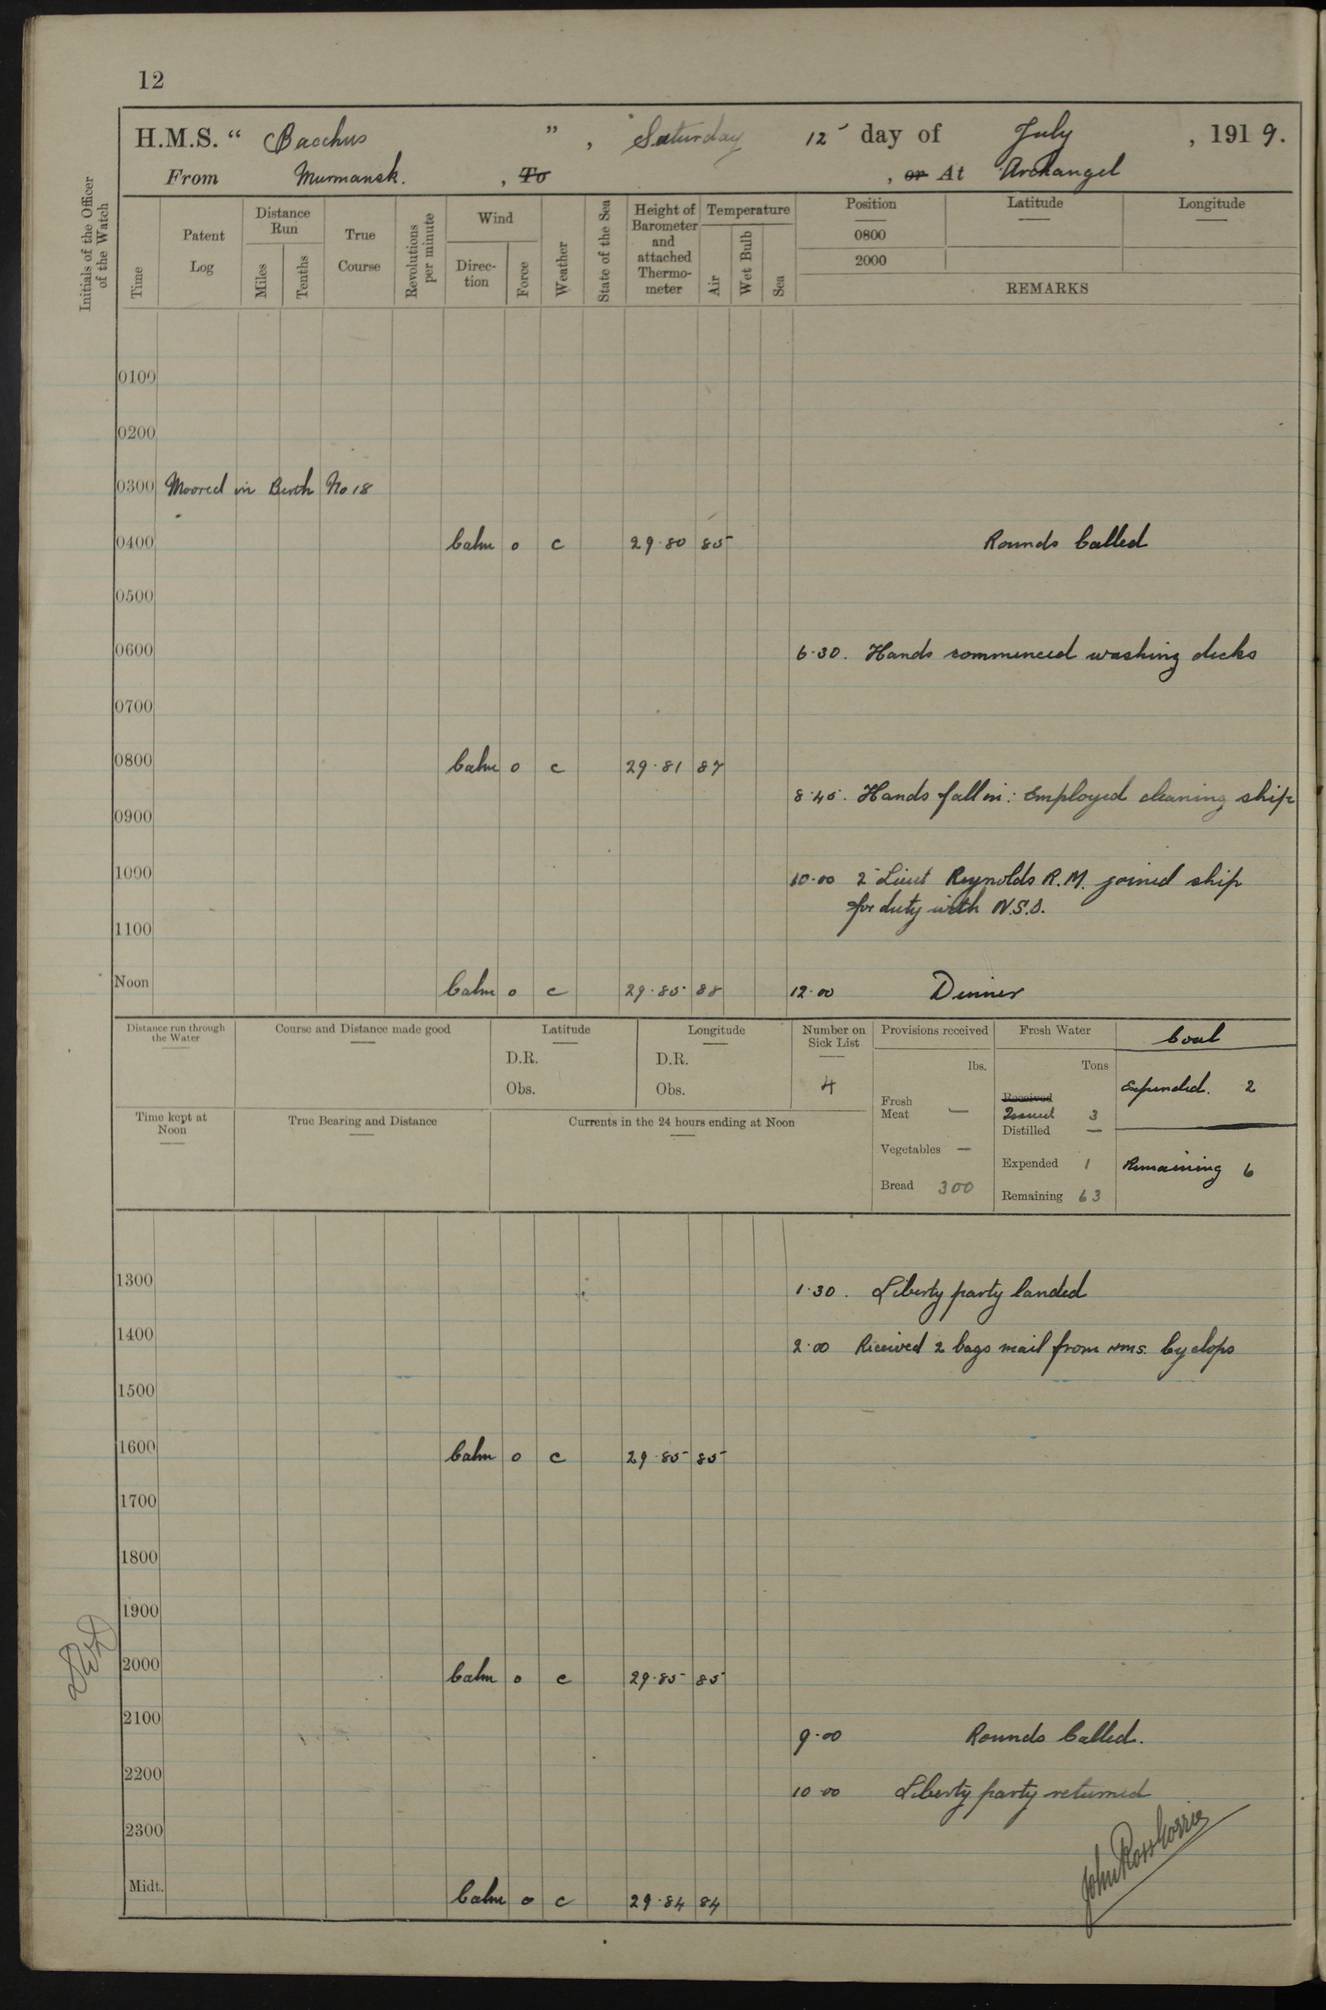 12
H.M.S. “ Bacchus ” , Saturday 12 day of July , 1919.
From Murmansk. , To , or At Archangel
Initials of the Officer of the Watch
Time
Patent Log
Distance Run
Miles
Tenths
True Course
Revolutions per minute
Wind
Direc-tion
Force
Weather
State of the Sea
Height of Barometer and attached Thermo-meter
Temperature
Air
Wet Bulb
Sea
Position Latitude Longitude
0800
2000
REMARKS
0100
0200
0300 Moored in Berth No 18
0400 Calm 0 c 29.80 85 Rounds Called
0500
0600 6.30. Hands commenced washing decks
0700
0800 Calm 0 c 29.81 87
8.45. Hands fall in: Employed cleaning ship
0900
1000 10.00 2 Lieut Reynolds R.M. joined ship
for duty with N.S.O.
1100
Noon Calm 0 c 29.85 88 12.00 Dinner
Distance run through the Water
Course and Distance made good
Latitude
D.R.
Obs.
Longitude
D.R.
Obs.
Number on Sick List
4
Provisions received
lbs.
Fresh Meat —
Vegetables —
Bread 300
Fresh Water
Tons
Received
Issued 3
Distilled —
Expended 1
Remaining 63
Coal
Expended. 2
Remaining 6
Time kept at Noon
True Bearing and Distance
Currents in the 24 hours ending at Noon
1300 1.30. Liberty party landed
1400 2.00 Received 2 bags mail from HMS. Cyclops
1500
1600 Calm 0 c 29.85 85
1700
1800
1900
2000 Calm 0 c 29.85 85
2100 9.00 Rounds Called.
2200 10.00 Liberty party returned
2300
John Ross Gorrie
Midt. Calm 0 c 29.84 84